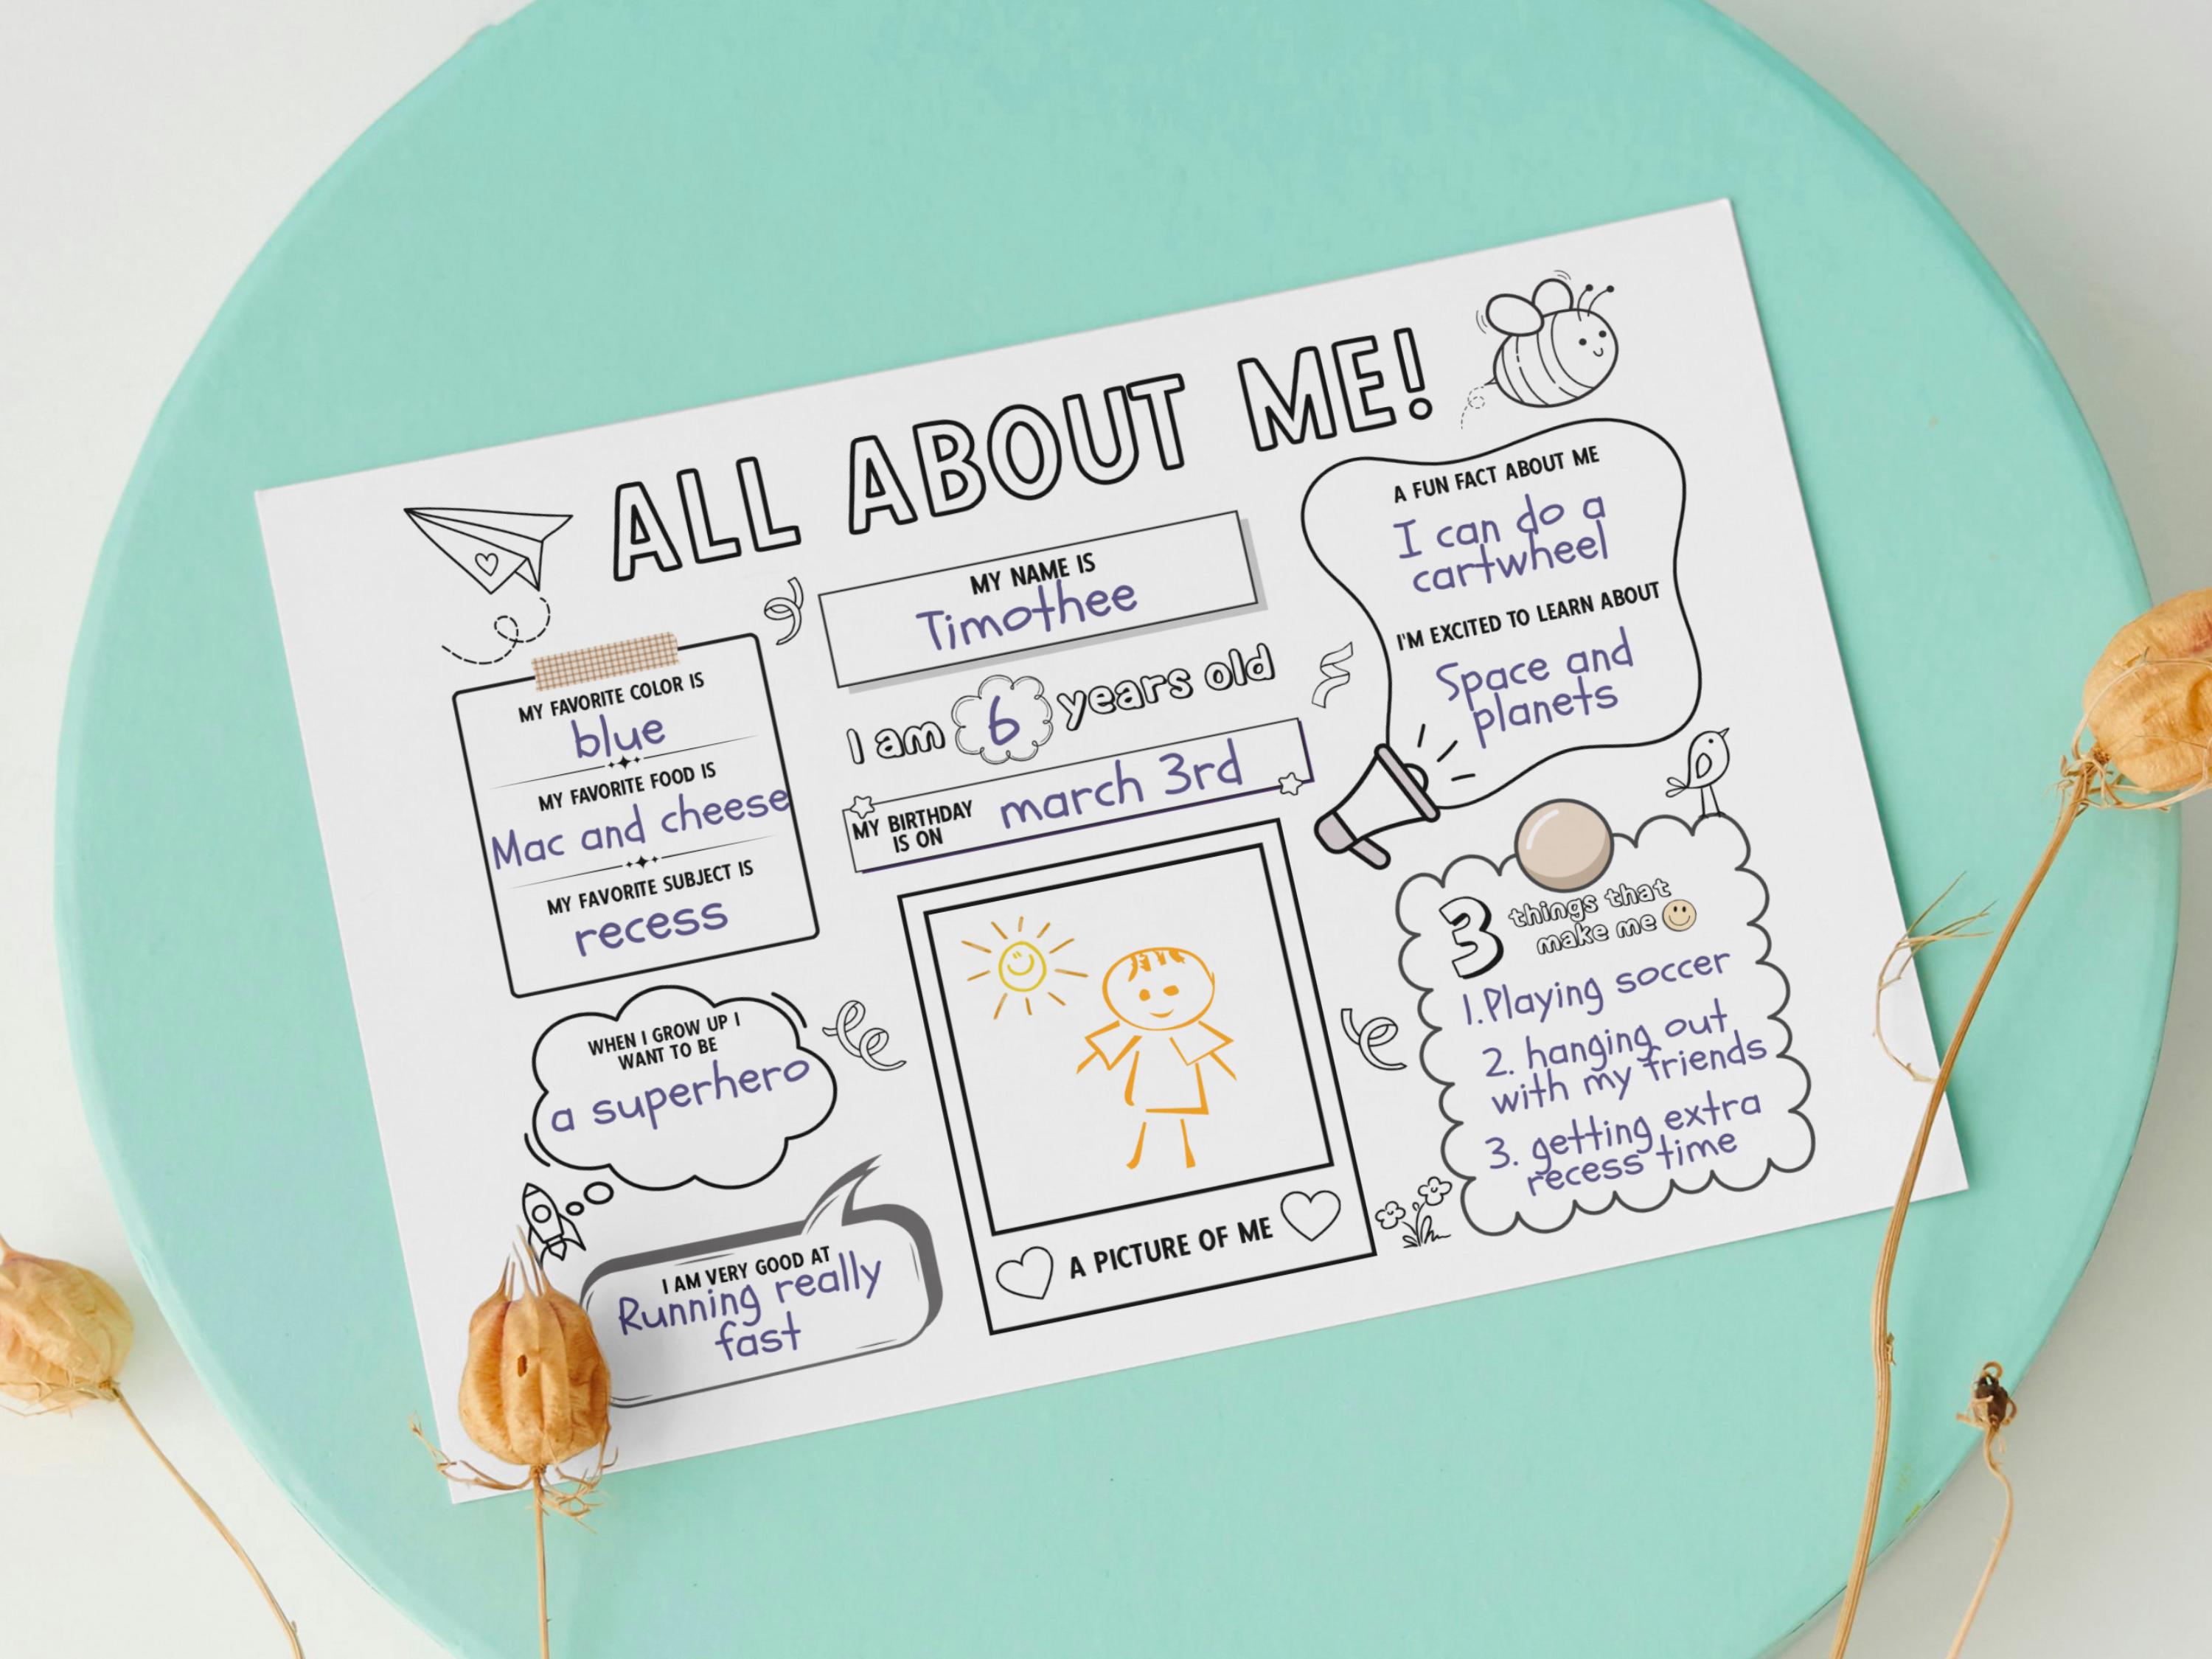 ALL ABOUT ME!
MY NAME IS
Timothee
I am 6 years old
MY BIRTHDAY
IS ON
march 3rd
MY FAVORITE COLOR IS
blue
MY FAVORITE FOOD IS
Mac and cheese
MY FAVORITE SUBJECT IS
recess
WHEN I GROW UP I
WANT TO BE
a superhero
I AM VERY GOOD AT
Running really
fast
A PICTURE OF ME
A FUN FACT ABOUT ME
I can do a
cartwheel
I'M EXCITED TO LEARN ABOUT
Space and
planets
3 things that
make me
1.Playing soccer
2. hanging out
with my friends
3. getting extra
recess time